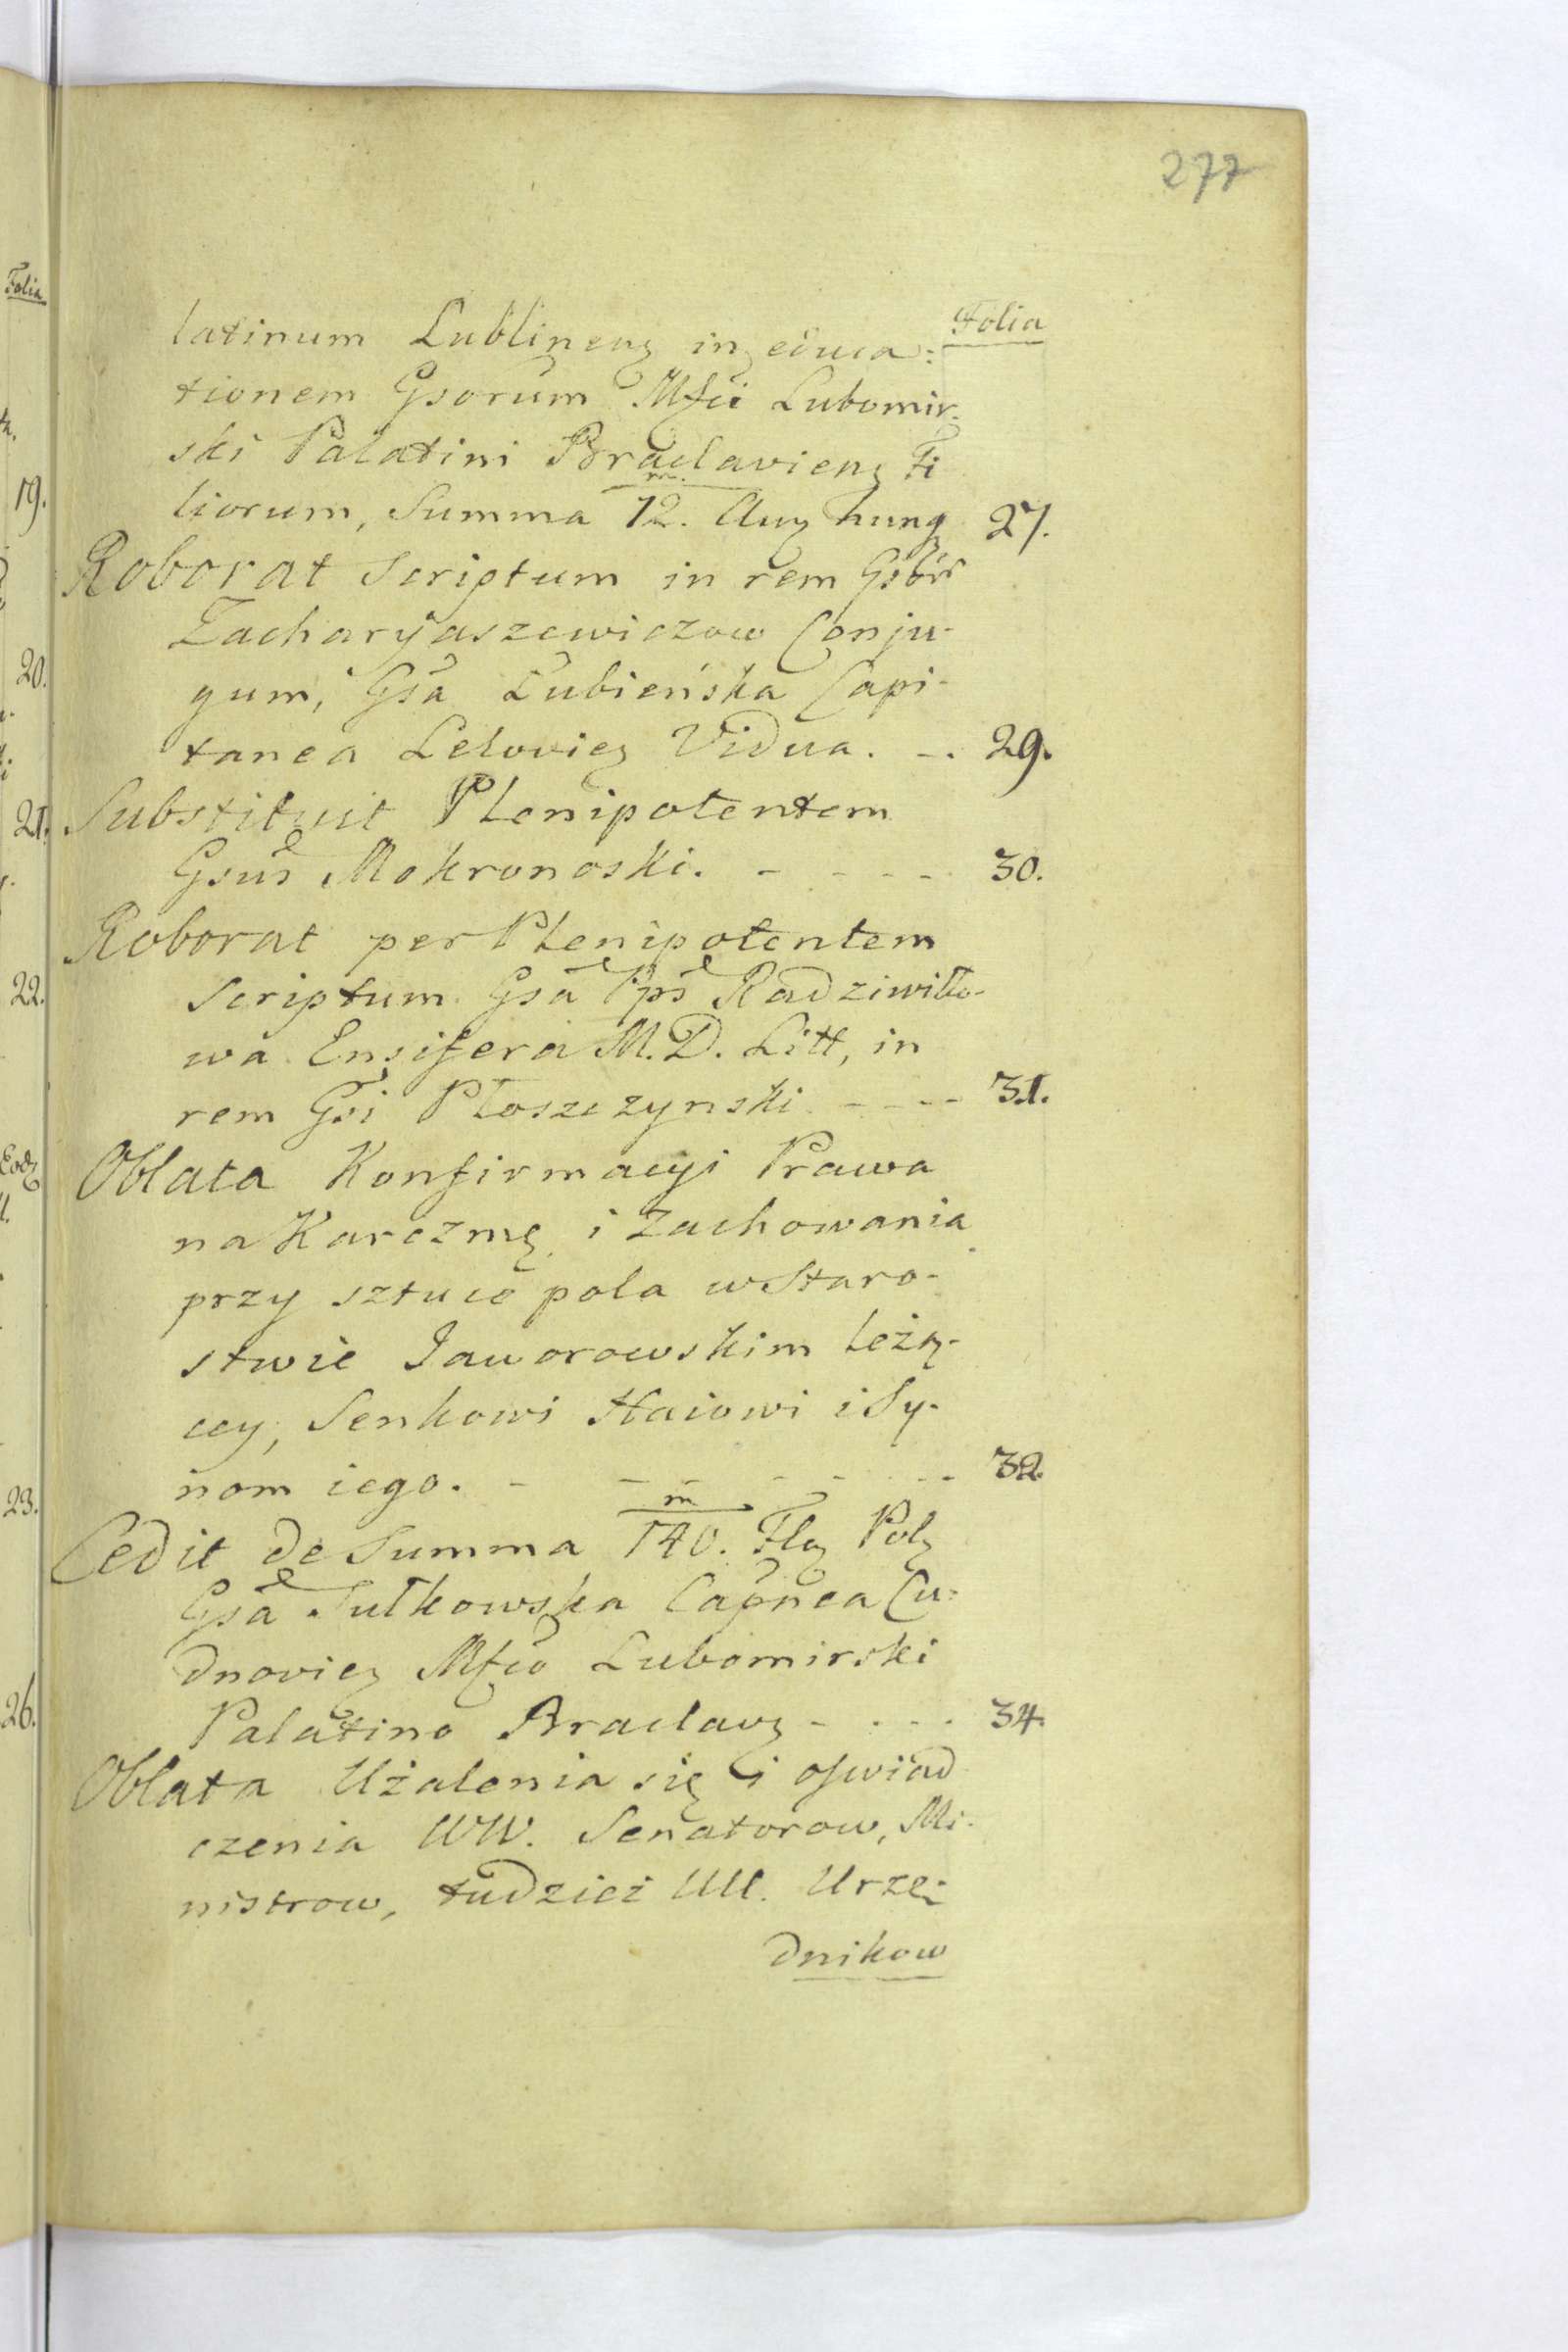 277
Folia
latinum Lublineng in educa:
tionem Gsorum Mfci Lubomir-
ski Palatini Braclavieng Fi
liorum, Summa 12/m. Aug hung 27.
Roborat Scriptum in rem Gsor
Zacharyaszewiczow Conju-
gum, Gsa Łubieńska Capi-
tanea Lelovieg Vidua. - . 29.
Substituit Plenipotentem
Gsus Mokronoski. - - - - 30.
Roborat per Plenipotentem
Scriptum Gsa Pps Radziwiło-
wa Ensifera M. D. Litt, in
rem Gsi Płoszczynski - - - - 31.
Oblata Konfirmacyi Prawa
na Karczmę i Zachowania
przy sztuce pola w Staro-
stwie Jaworowskim leżą-
cey, Senkowi Haiowi i Sy-
nom iego. - - - - - - - 32.
Cedit de Summa 140/m. Flg Polg
Gsa Sułkowska Capnea Cu-
dnovieg Mfco Lubomirski
Palatino Braclavg - - - - 34.
Oblata Użalenia się i oswiad
czenia WW. Senatorow, Mi-
nistrow, tudzież UU. Urzę-
dnikow
Folia
19.
20.
21.
22.
23.
26.